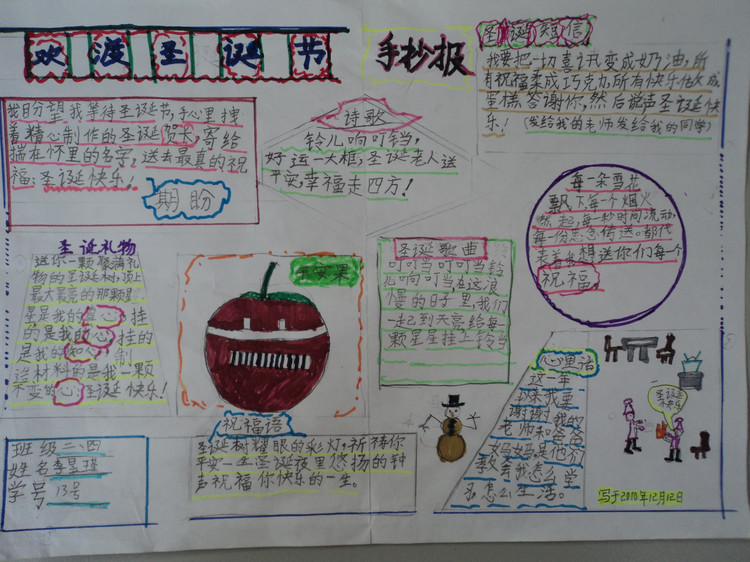 欢渡圣诞节
手抄报
圣诞短信
我要把一切喜讯变成奶油,所
有祝福柔成巧克力,所有快乐做成
蛋糕,答谢你,然后说声圣诞快
乐!(发给我的老师发给我的同学)
我盼望,我等待圣诞节,手心里拽
着精心制作的圣诞贺卡,寄给
揣在怀里的名字,送去最真的祝
福:圣诞快乐!
期盼
诗歌
铃儿响叮铛,
好运一大框,圣诞老人送
平安,幸福走四方!
每一朵雪花
飘下每一个烟火
燃起,每一秒时间流动,
每一份思念传送。都代
表着我想送你们每个
祝福,
圣诞礼物
送你一颗聚满礼
物的圣诞树,顶上
最大最亮的那颗星
星是我的真心,挂
的是我的心,挂的
是我的知心,制
造材料的是我一颗
不变的心:圣诞快乐!
平安果
圣诞歌曲
叮叮当叮叮当铃
儿响叮当在这浪
慢的日子里,我们
一起到天亮给每一
颗星星挂上铃当
心里话
这一年
以来我要
谢谢我的
老师和爸爸
妈妈是他们
教育我怎么学
习怎么生活。
圣诞老人快乐
祝福语
圣诞树耀眼的彩灯,祈祷你
平安一生圣诞夜里悠扬的钟
声祝福你快乐的一生。
班级二、四
姓名李星瑾
学号13号
写于2010年12月12日